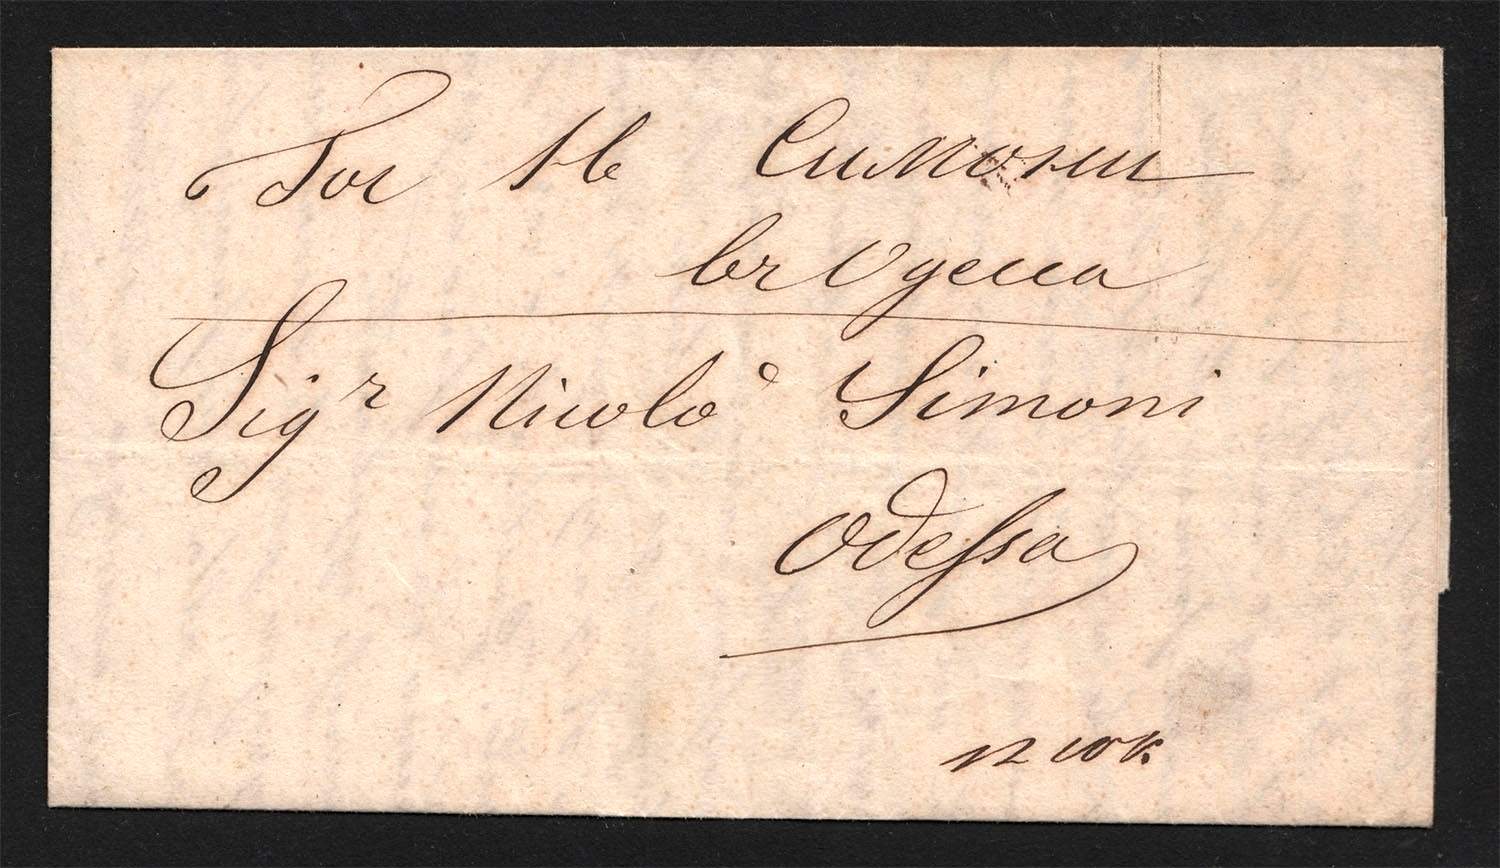 Гос Н Симони
въ Одесса
Sigr Nicolò Simoni
Odessa